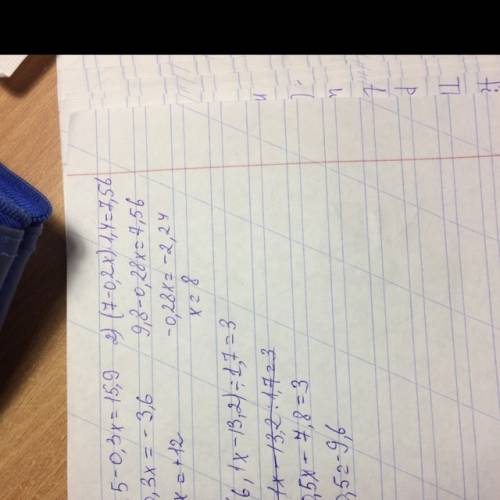 5-0,3x=15,9
0,3x=-3,6
x=+12
2) (7-0,2x)1,4=7,56
9,8-0,28x=7,56
-0,28x=-2,24
x=8
6,1x-13,2):1,7=3
1x-13,2:1,7=3
0,5x-7,8=3
0,5=-9,6